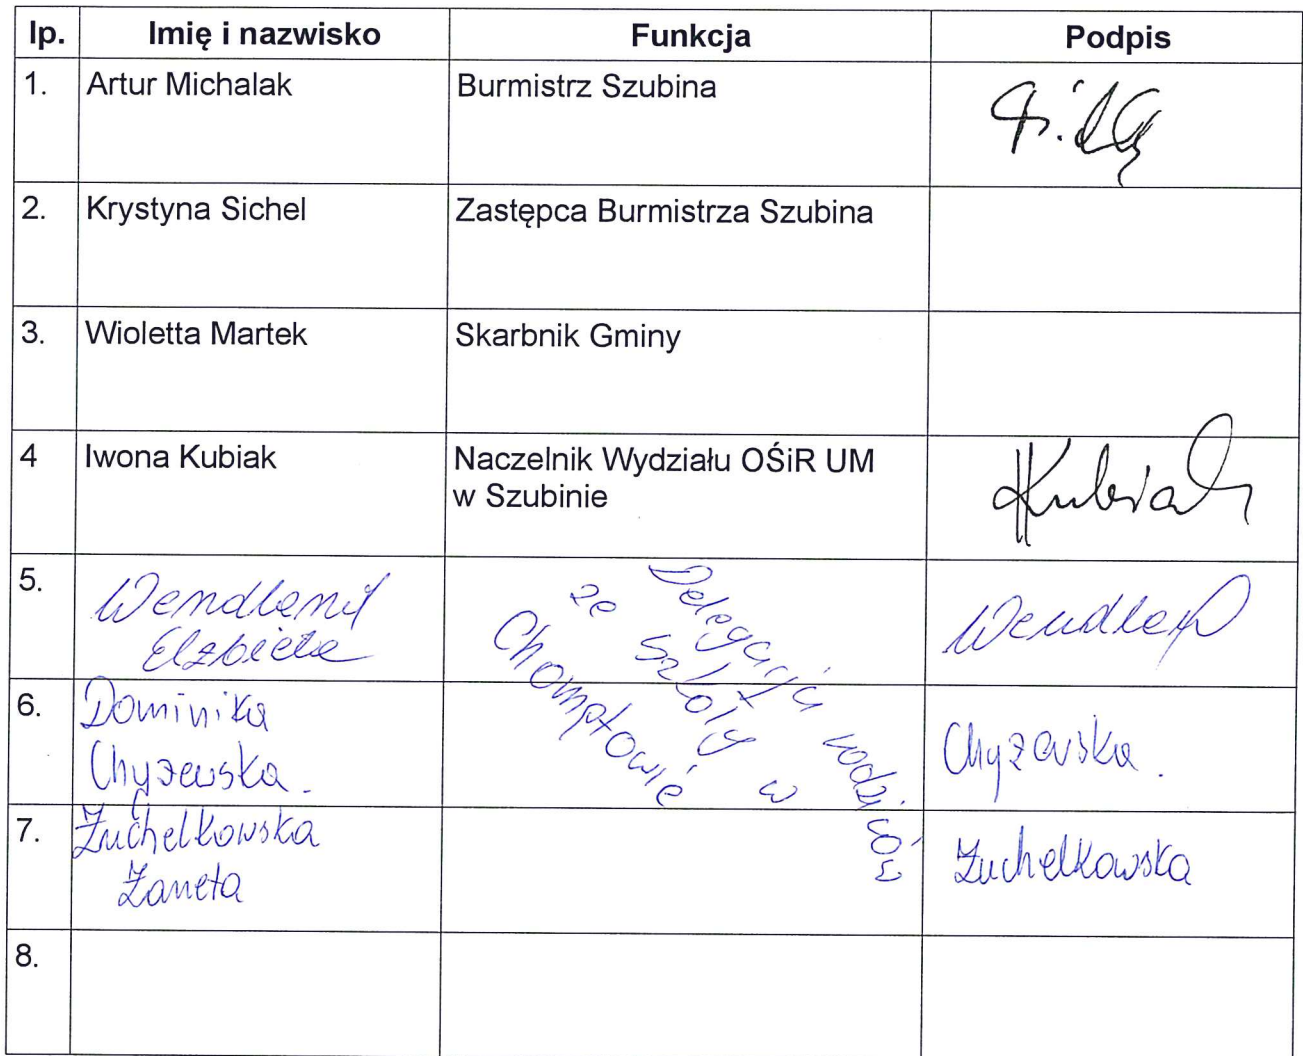 lp. Imię i nazwisko Funkcja Podpis
1. Artur Michalak Burmistrz Szubina
2. Krystyna Sichel Zastępca Burmistrza Szubina
3. Wioletta Martek Skarbnik Gminy
4 Iwona Kubiak Naczelnik Wydziału OŚiR UM
w Szubinie
Kubiak
5. Wendland
Elżbieta
Delegacja rodziców
ze szkoły w
Chomętowie
Wendland
6. Dominika
Chyżewska.
Chyżewska.
7. Żuchelkowska
Żaneta
Żuchelkowska
8.